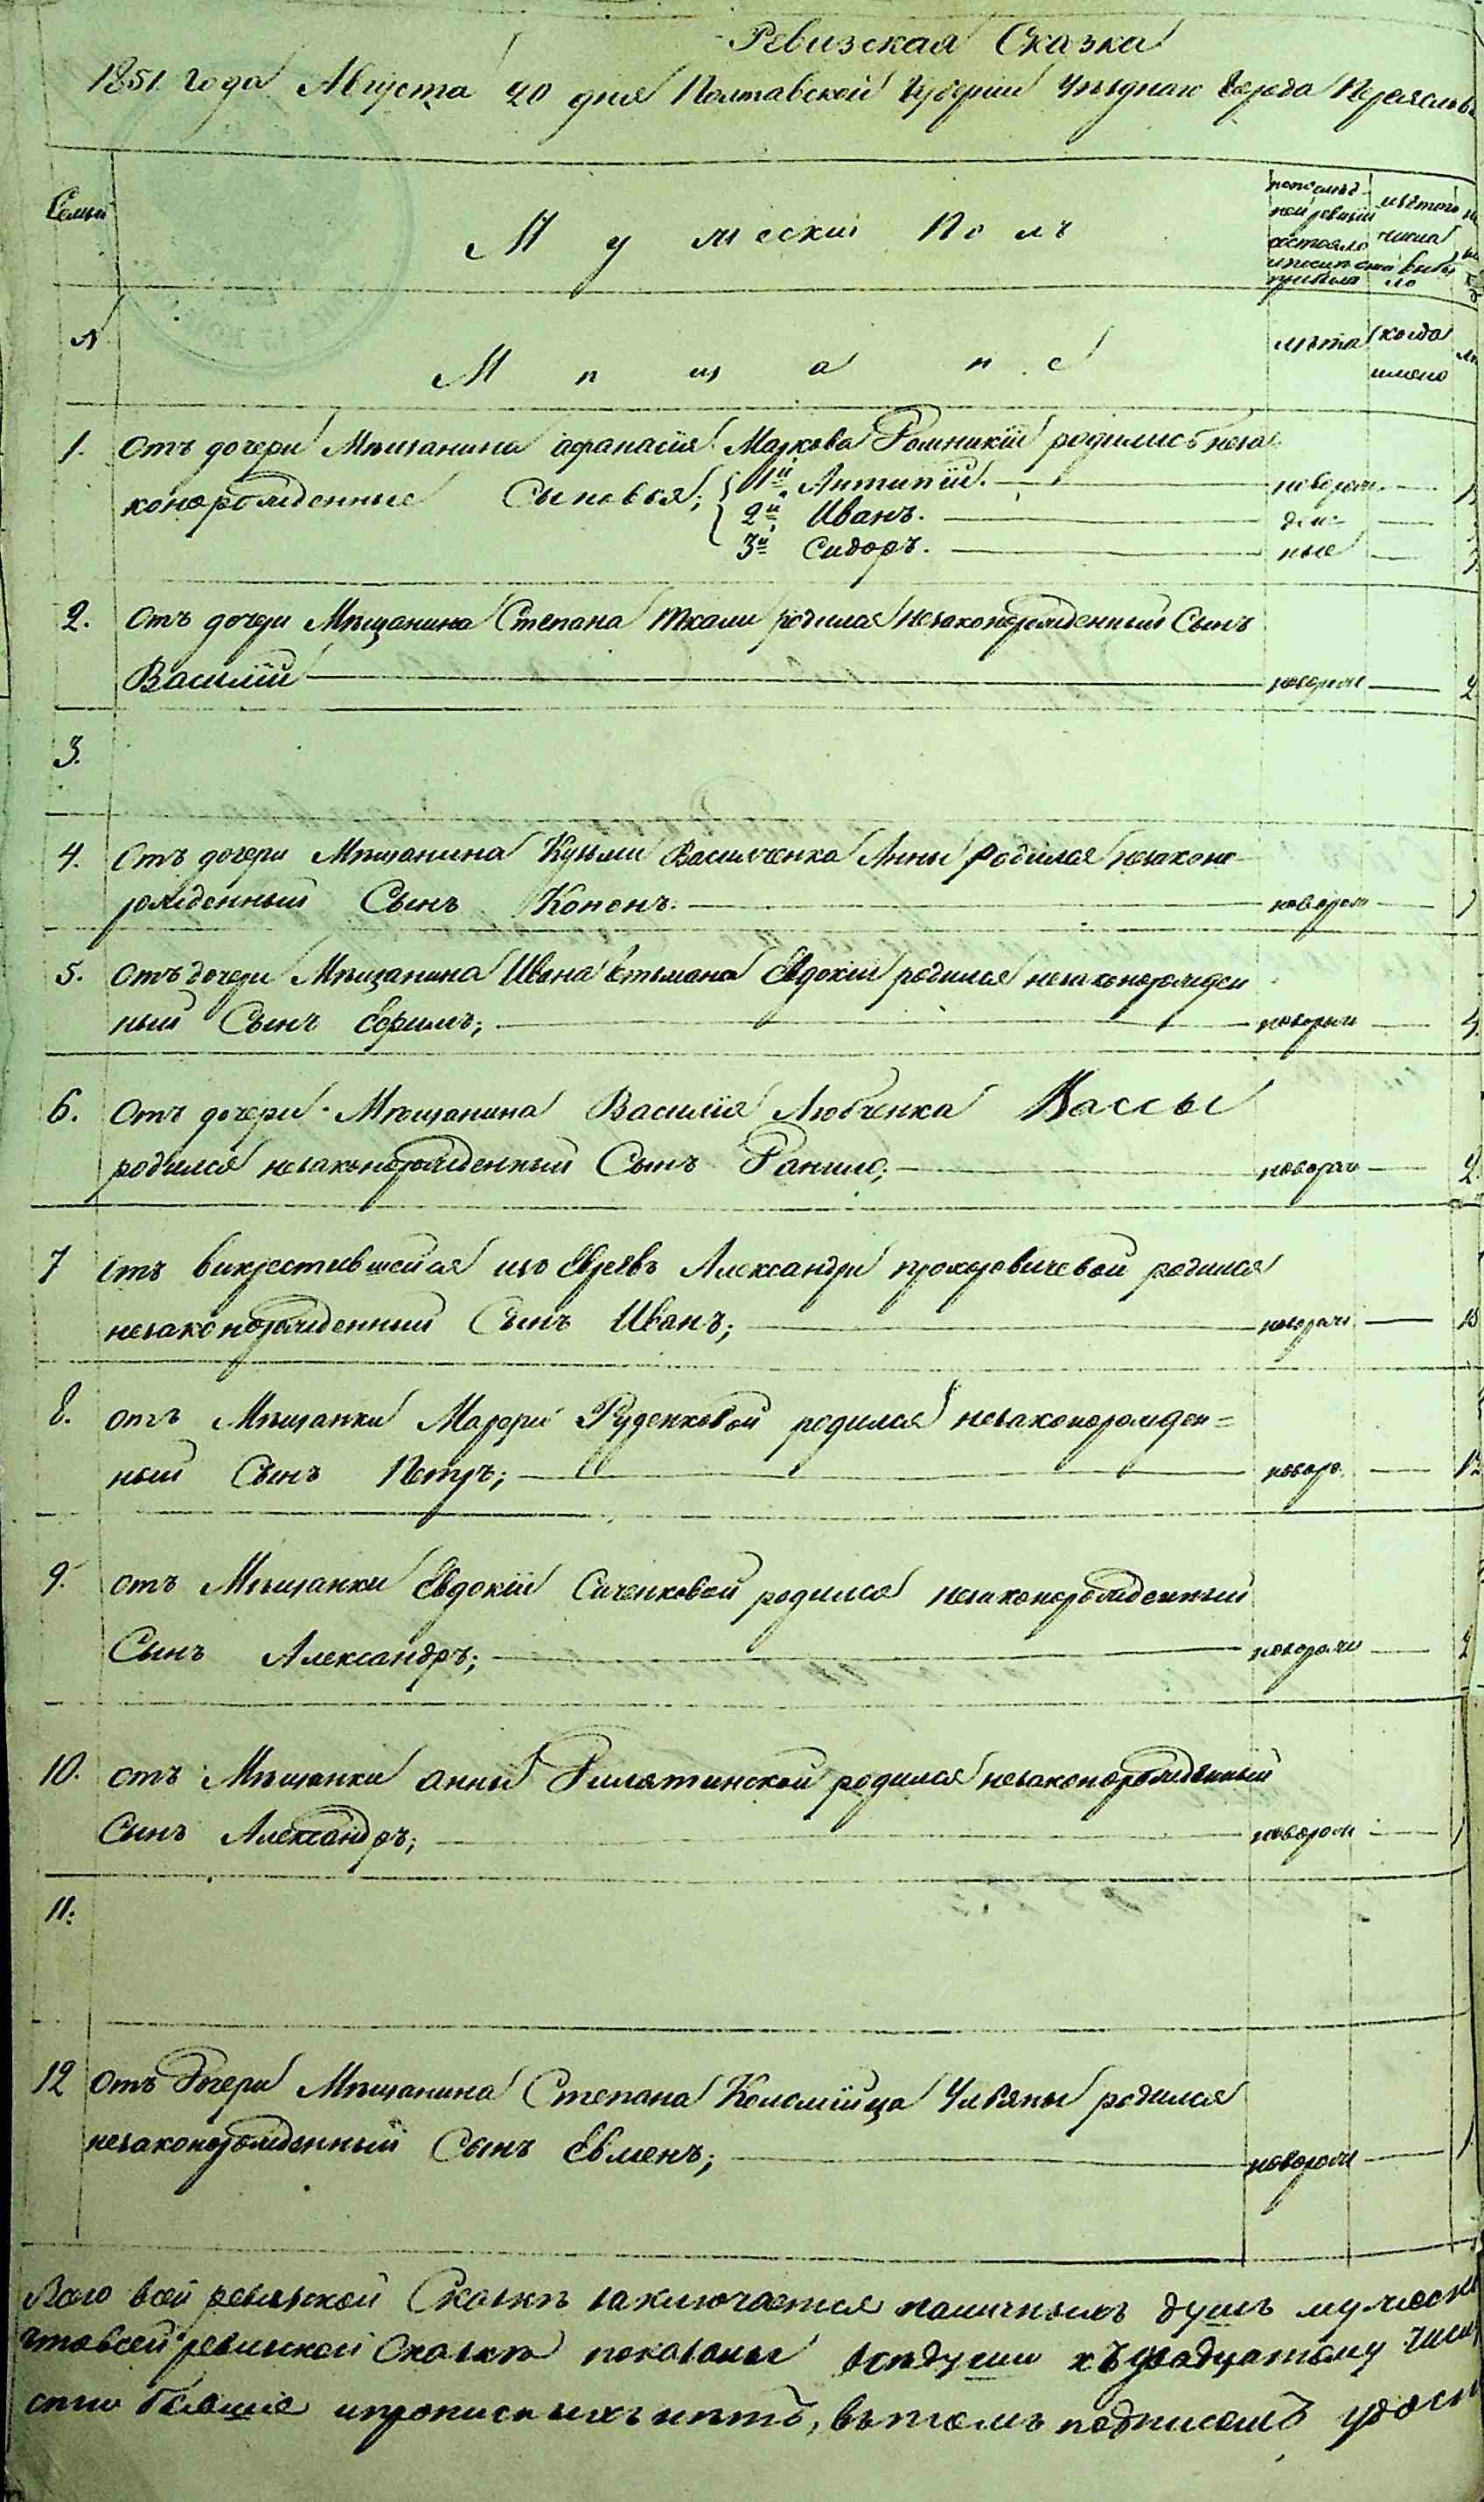 Ревизская Сказка
1851 года Августа 20 дня Полтавской Губернии Уѣзднаго Города Переяслова
Семьи
Мужескій Полъ
№
Мѣщане
лѣта
когда
имено
1. Отъ дочери Мѣщанина афанасія Маркова родились неза
конорожденные Сыновья; 1й Антипій.
2й Иванъ.
3й Сидоръ.
новорож
ден
ные
2. Отъ дочери Мѣщанина Степана родился незаконорожденный Сынъ
Василій новорож
3.
4. Отъ дочери Мѣщанина Кузьми Василченка Анны родился незконо
рожденный Сынъ Кононъ. новорож
5. Отъ дочери Мѣщанина Ивана Евдокіи родился незаконорожден
ный Сынъ Ефимъ; новорож
6. Отъ дочери Мѣщанина Василія Любченка Вассы
родился незаконорожденный Сынъ новорож
7 Отъ викрестившейся изъ Евреевъ Александри прохоровичевой родился
незаконорожденный Сынъ Иванъ; новорож
8. отъ Мѣщанки Марфи Руденковой родился незаконорожден=
ный Сынъ Петръ; новоро
9. отъ Мѣщанки Евдокіи Саченковой родился незаконорожденный
Сынъ Александръ; новорож
10. отъ Мѣщанки анны родился незаконорожденный
Сынъ Александръ; новорож
11.
12 Отъ Дочери Мѣщанина Степана Коломійца Ульяны родился
незаконорожденный Сынъ Евменъ; новорож
всей ревизской Сказкѣ заключается наличныхъ душъ
ревизской Сказкѣ показаны всѣ души къ двадцатому
прописныхъ нѣтъ, въ томъ подписомъ